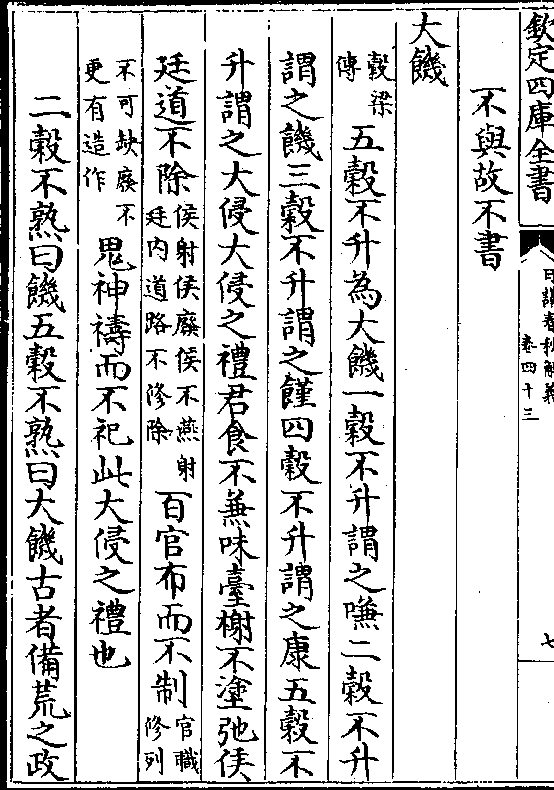 欽定四庫全書
日講春秋解義
卷四十三
七
不與故不書
大饑
穀梁傳
五穀不升為大饑一穀不升謂之嗛二穀不升
謂之饑三穀不升謂之饉四穀不升謂之康五穀不
升謂之大侵大侵之禮君食不兼味臺榭不塗弛侯
廷道不除侯射侯廢侯不燕射廷内道路不修除百官布而不制官職修列
不可缺廢不更有造作鬼神禱而不祀此大侵之禮也
二榖不熟曰饑五榖不熟曰大饑古者備荒之政